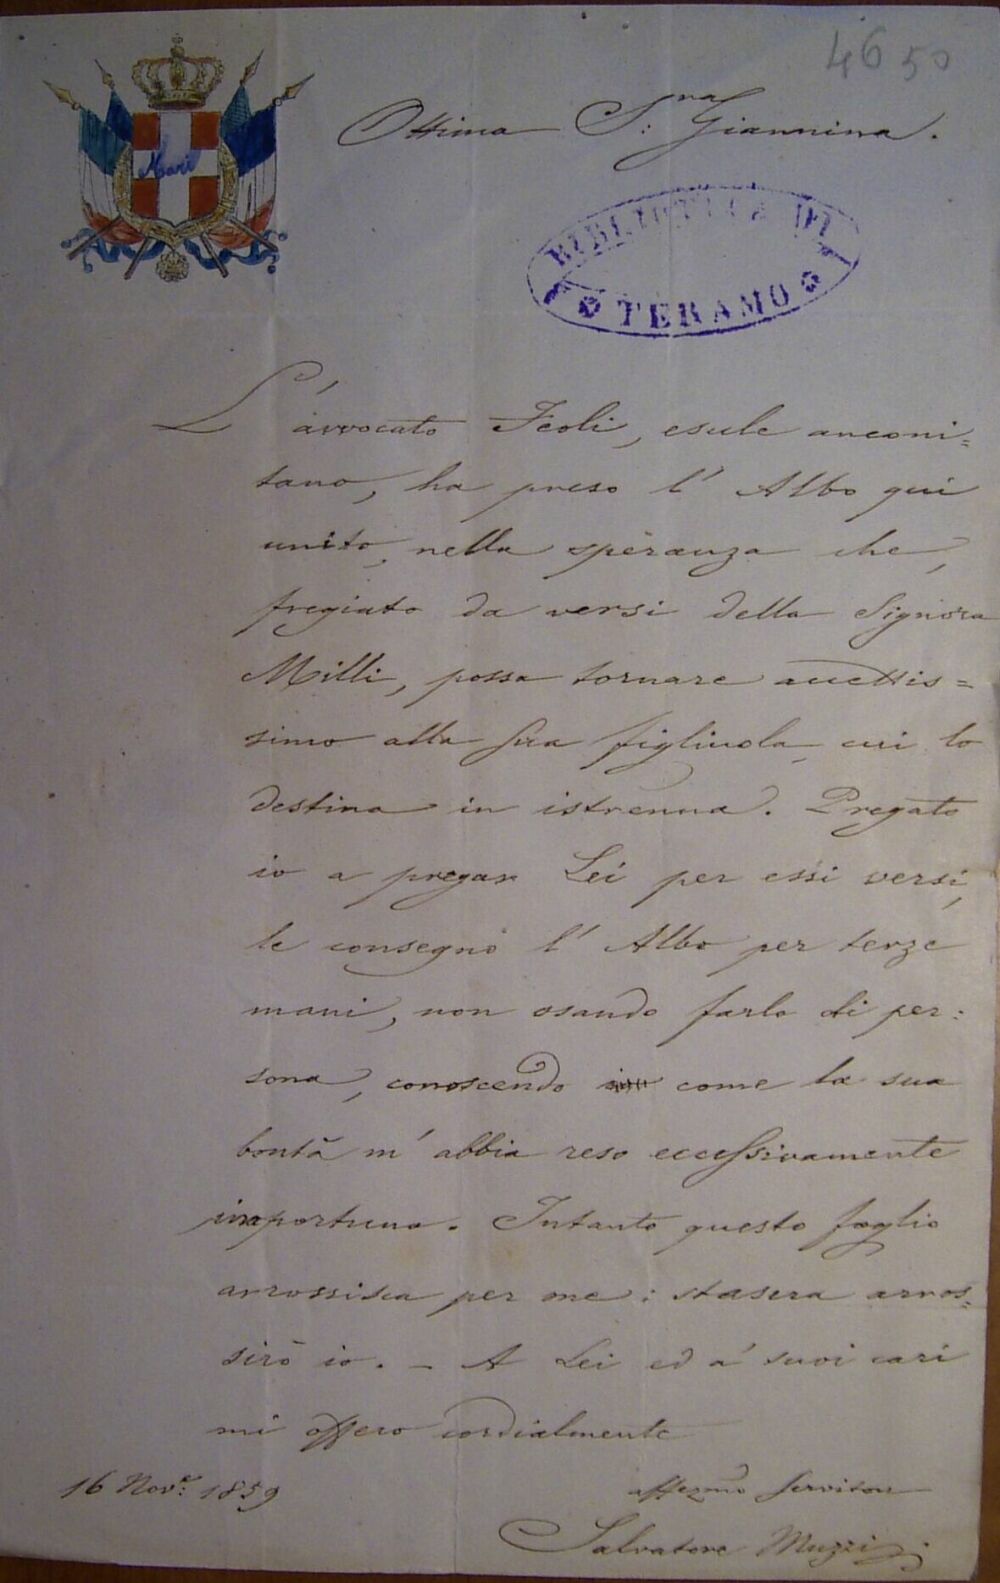 4650
Ottima S.ra Giannina.
BIBLIOTECA DI
TERAMO
L'avvocato Feoli, esule anconi=
tano, ha preso l'Albo qui
unito, nella speranza che,
fregiato da versi della Signora
Milli, possa tornare accettis=
simo alla sua figliuola, cui lo
destina in istrenna. Pregato
io a pregar Lei per essi versi,
le consegno l'Albo per terze
mani, non osando farlo di per:
sona, conoscendo come la sua
bontà m'abbia reso eccessivamente
importuno. Intanto questo foglio
arrossisca per me: stasera arros=
sirò io. – A Lei ed a' suoi cari
mi offero cordialmente
16 Nov.e 1859
affezmo servitore
Salvatore Muzzi